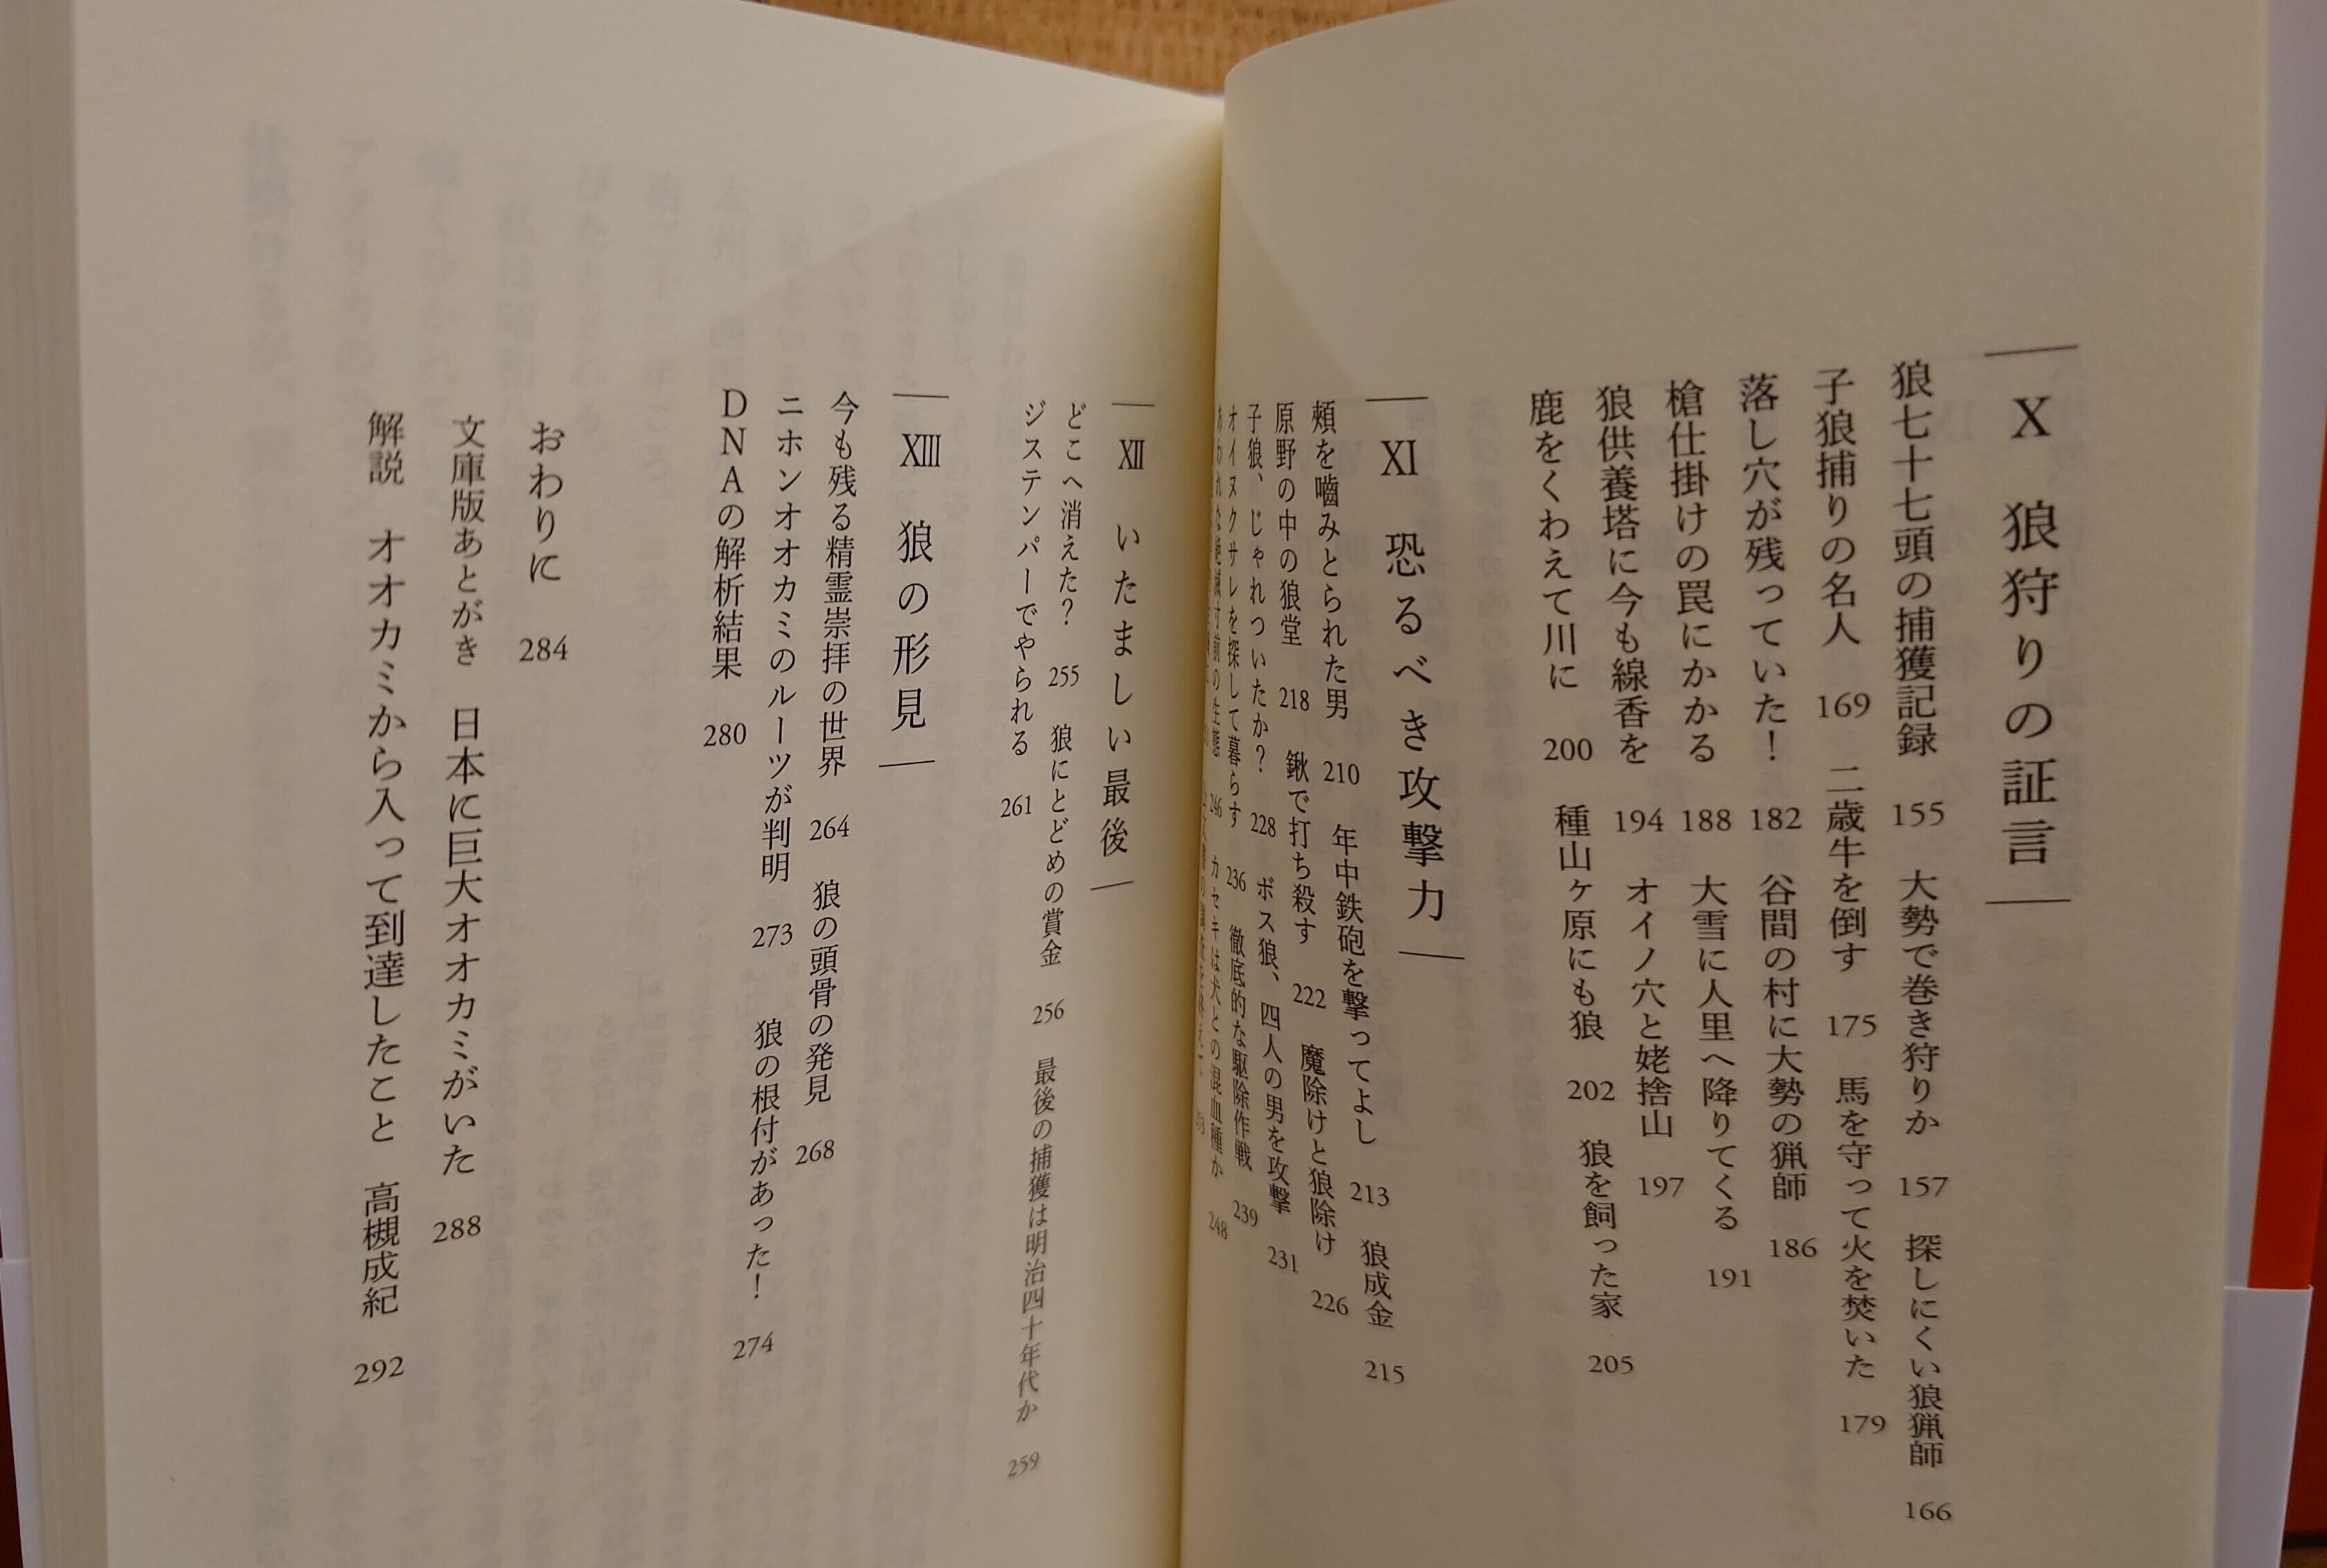 X 狼狩りの証言
狼七十七頭の捕獲記録 155 大勢で巻き狩りか 157 探しにくい狼猟師 166
子狼捕りの名人 169 二歳牛を倒す 175 馬を守って火を焚いた 179
落し穴が残っていた! 182 谷間の村に大勢の猟師 186
槍仕掛けの罠にかかる 188 大雪に人里へ降りてくる 191
狼供養塔に今も線香を 194 オイノ穴と姥捨山 197
鹿をくわえて川に 200 種山ヶ原にも狼 202 狼を飼った家 205
XI 恐るべき攻撃力
頰を嚙みとられた男 210 年中鉄砲を撃ってよし 213 狼成金 215
原野の中の狼堂 218 鍬で打ち殺す 222 魔除けと狼除け 226
子狼、じゃれついたか? 228 ボス狼、四人の男を攻撃 231
オイヌクサレを探して暮らす 236 徹底的な駆除作戦 239
あわれな絶滅寸前の生態 246 カセキは犬との混血種か 248
XII いたましい最後
どこへ消えた? 255 狼にとどめの賞金 256 最後の捕獲は明治四十年代か 259
ジステンパーでやられる 261
XIII 狼の形見
今も残る精霊崇拝の世界 264 狼の頭骨の発見 268
ニホンオオカミのルーツが判明 273 狼の根付があった! 274
DNAの解析結果 280
おわりに 284
文庫版あとがき 日本に巨大オオカミがいた 288
解説 オオカミから入って到達したこと 高槻成紀 292